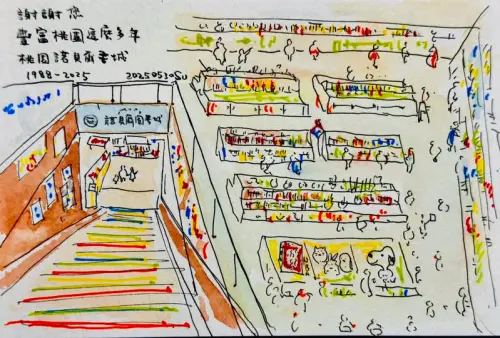 謝謝您
豐富桃園這麼多年
桃園諾貝爾書城
1988-2025 20250530SU
諾貝爾圖書城